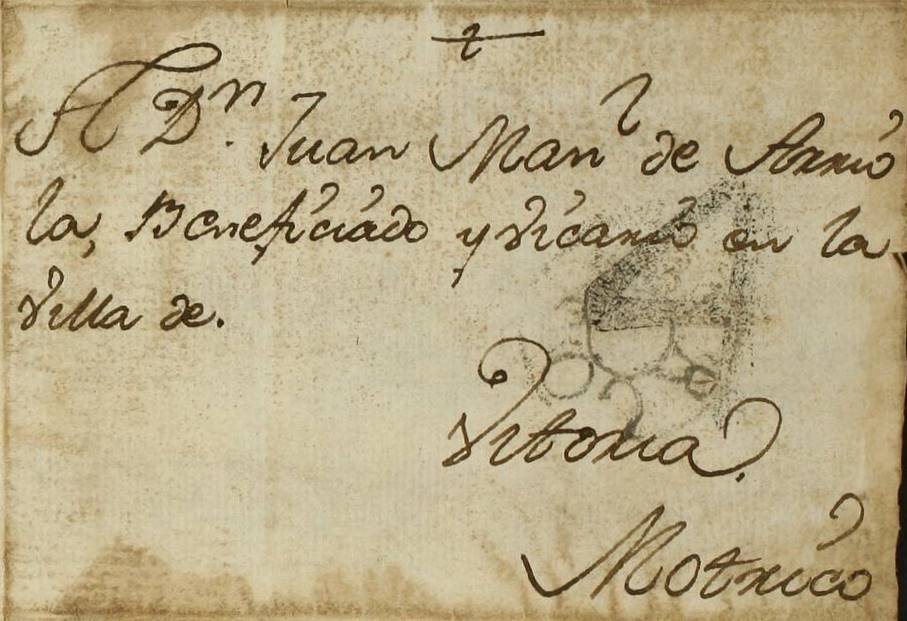 A Dn. Juan Manl de Arrio
la, Beneficiado y Vicario en la
Villa de.
Vitoria
Motrico